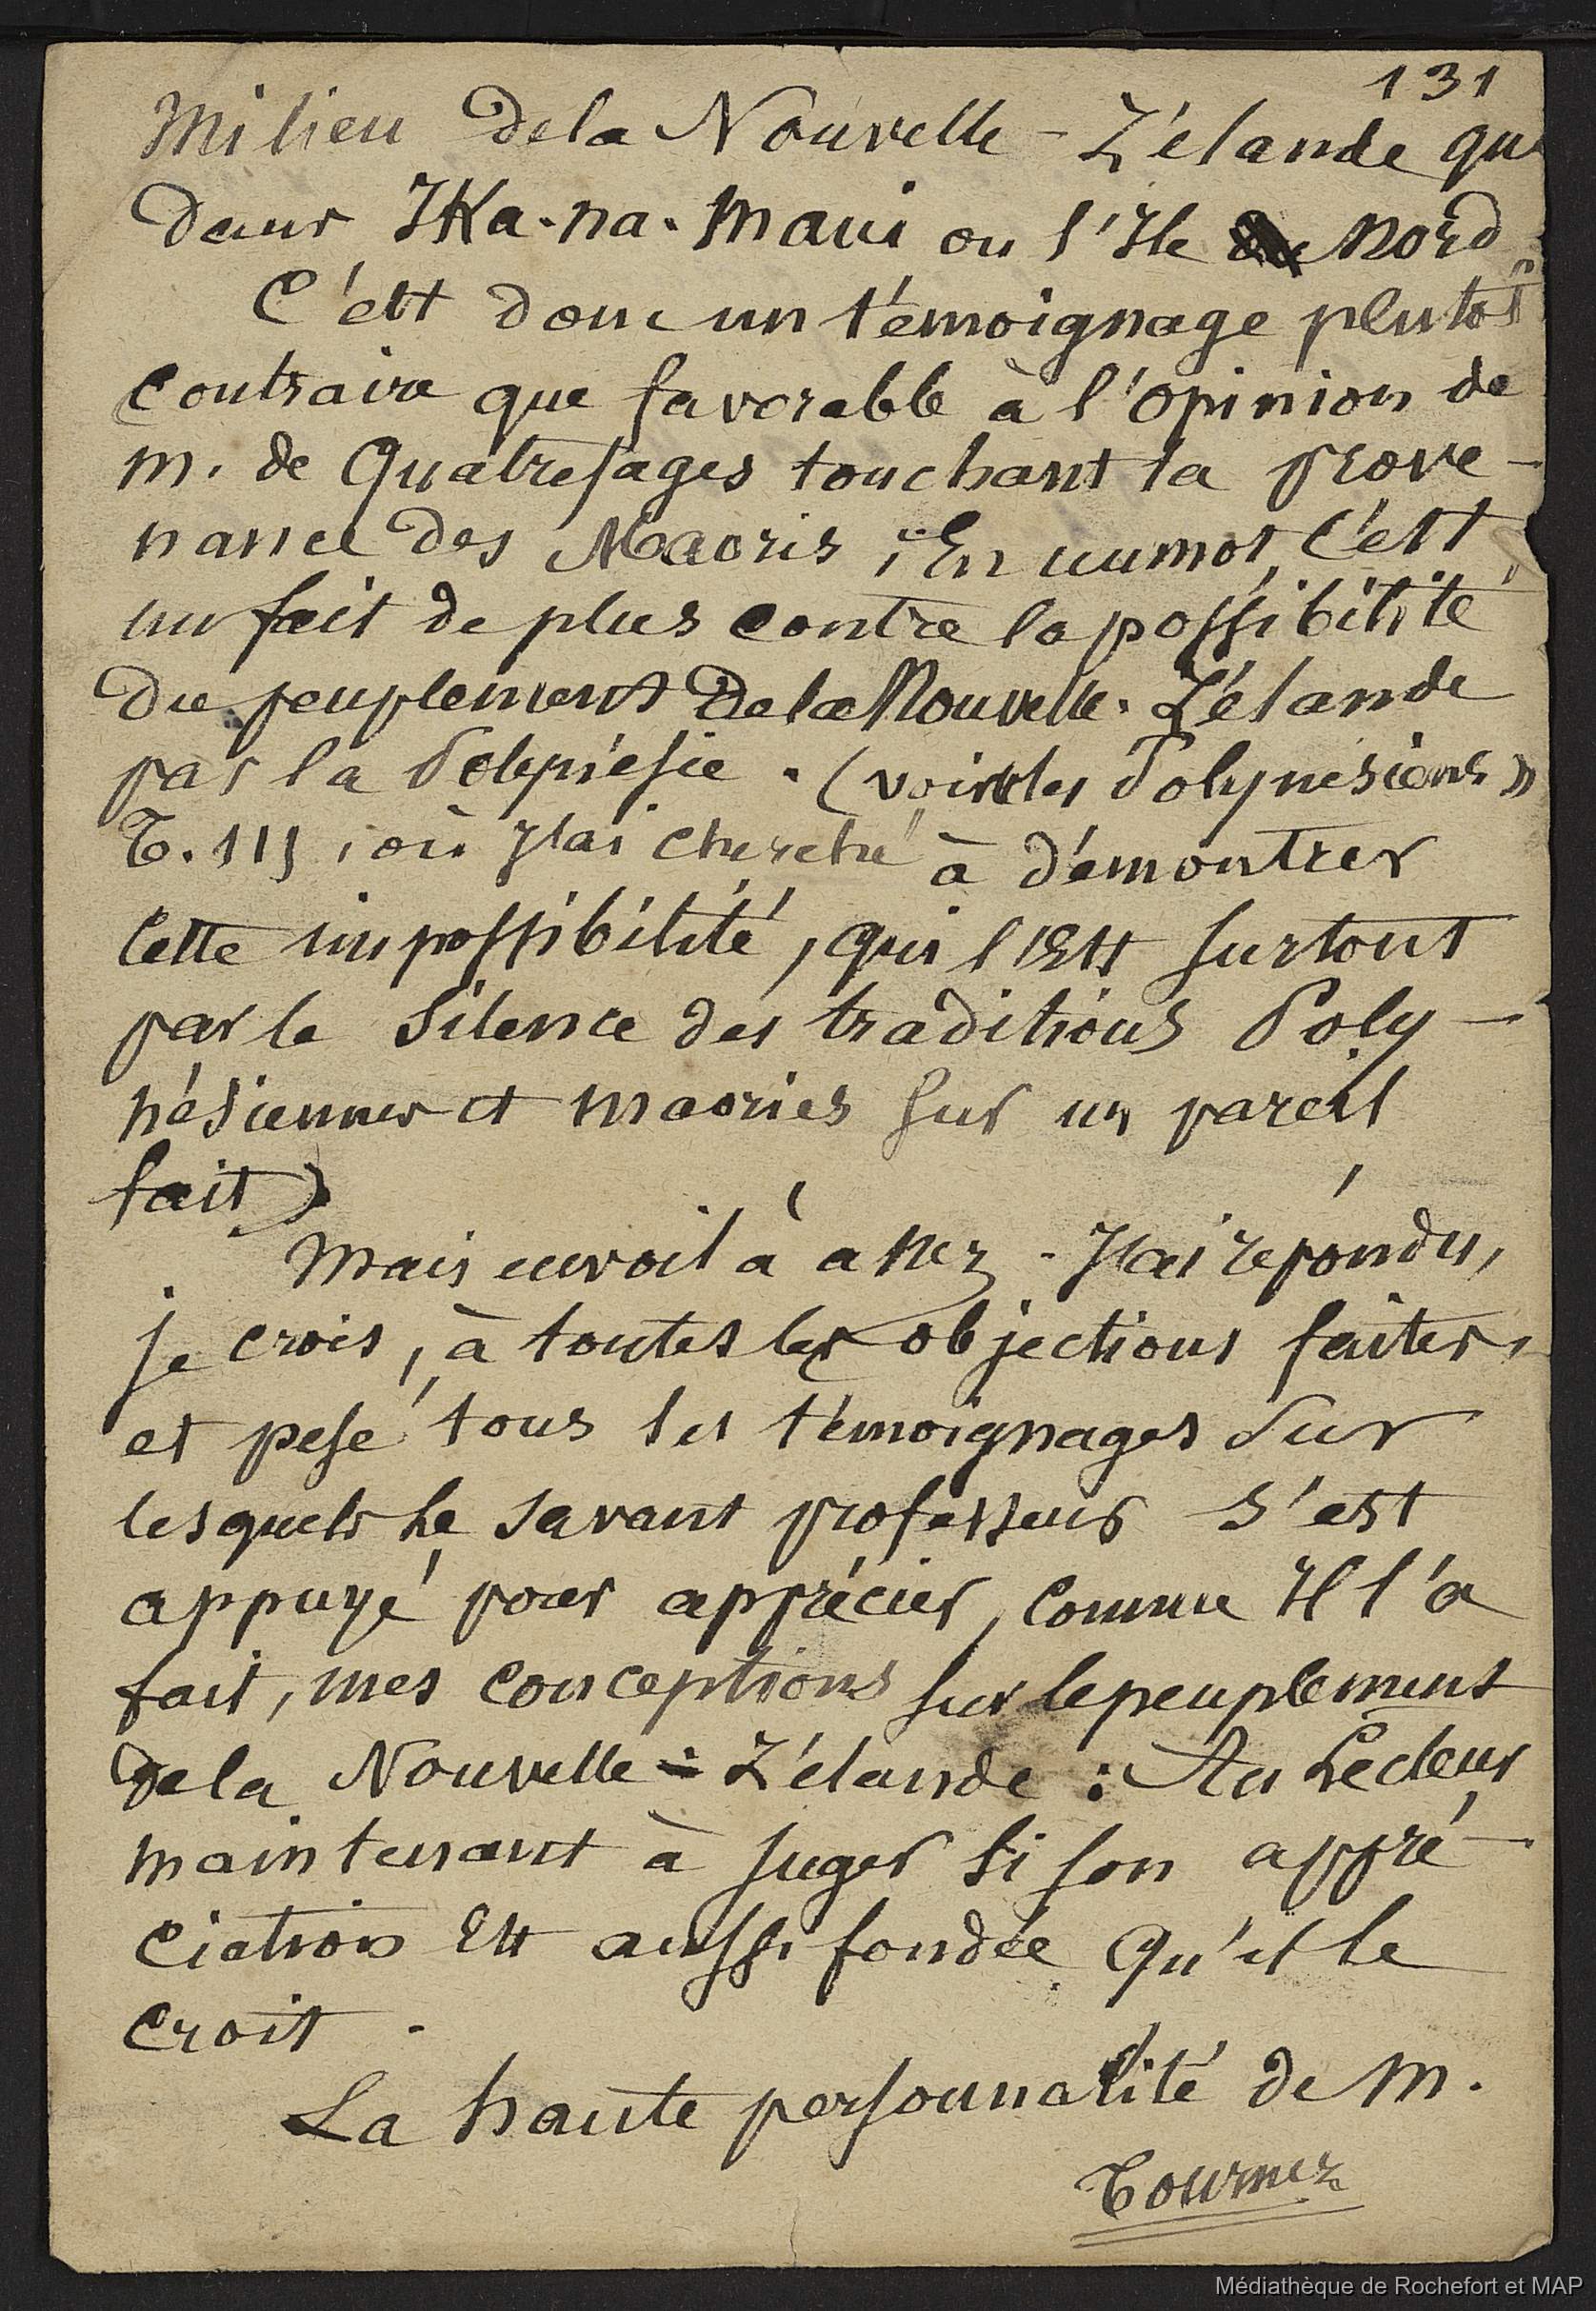 131
Milieu de la Nouvelle-Zélande que
dans Ika-na-Maui ou l'Ile Nord
C'est donc un témoignage plutôt
contraire que favorable à l'opinion de
M. de Quatrefages touchant la prove-
nance des Maoris ; En un mot, c'est
un fait de plus contre la possibilité
du peuplement de la Nouvelle-Zélande
par la Polynésie. (voir les Polynésiens »
T. III, où J'ai cherché à démontrer
cette impossibilité, qui l'Est surtout
par le Silence des traditions Poly-
nésiennes et maories sur un pareil
fait)
Mais en voilà assez - J'ai répondu,
je crois, à toutes les objections faites,
et pesé tous les témoignages sur
lesquels le savant professeur s'est
appuyé pour apprécier, comme Il l'a
fait, mes conceptions sur le peuplement
de la Nouvelle-Zélande : Au Lecteur
maintenant à juger si son appré-
ciation Est aussi fondée qu'il le
croit.
La haute personnalité de M.
Tournez
Médiathèque de Rochefort et MAP